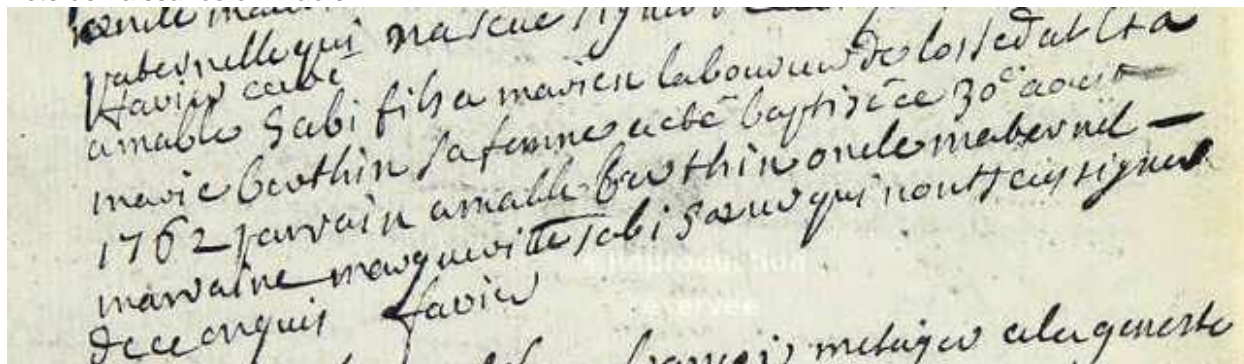 paternelle qui na sceue signer
favier curé
amable Sabi fils a marien laboureur de lossedat et a
marie berthin sa femme a eté baptisé ce 30e aoust
1762 parrain amable berthin oncle maternel —
marraine margueritte sabi soeur qui nont sceus signer
de ce enquis favier
françois metayer a la geneste
reproduction
reservée